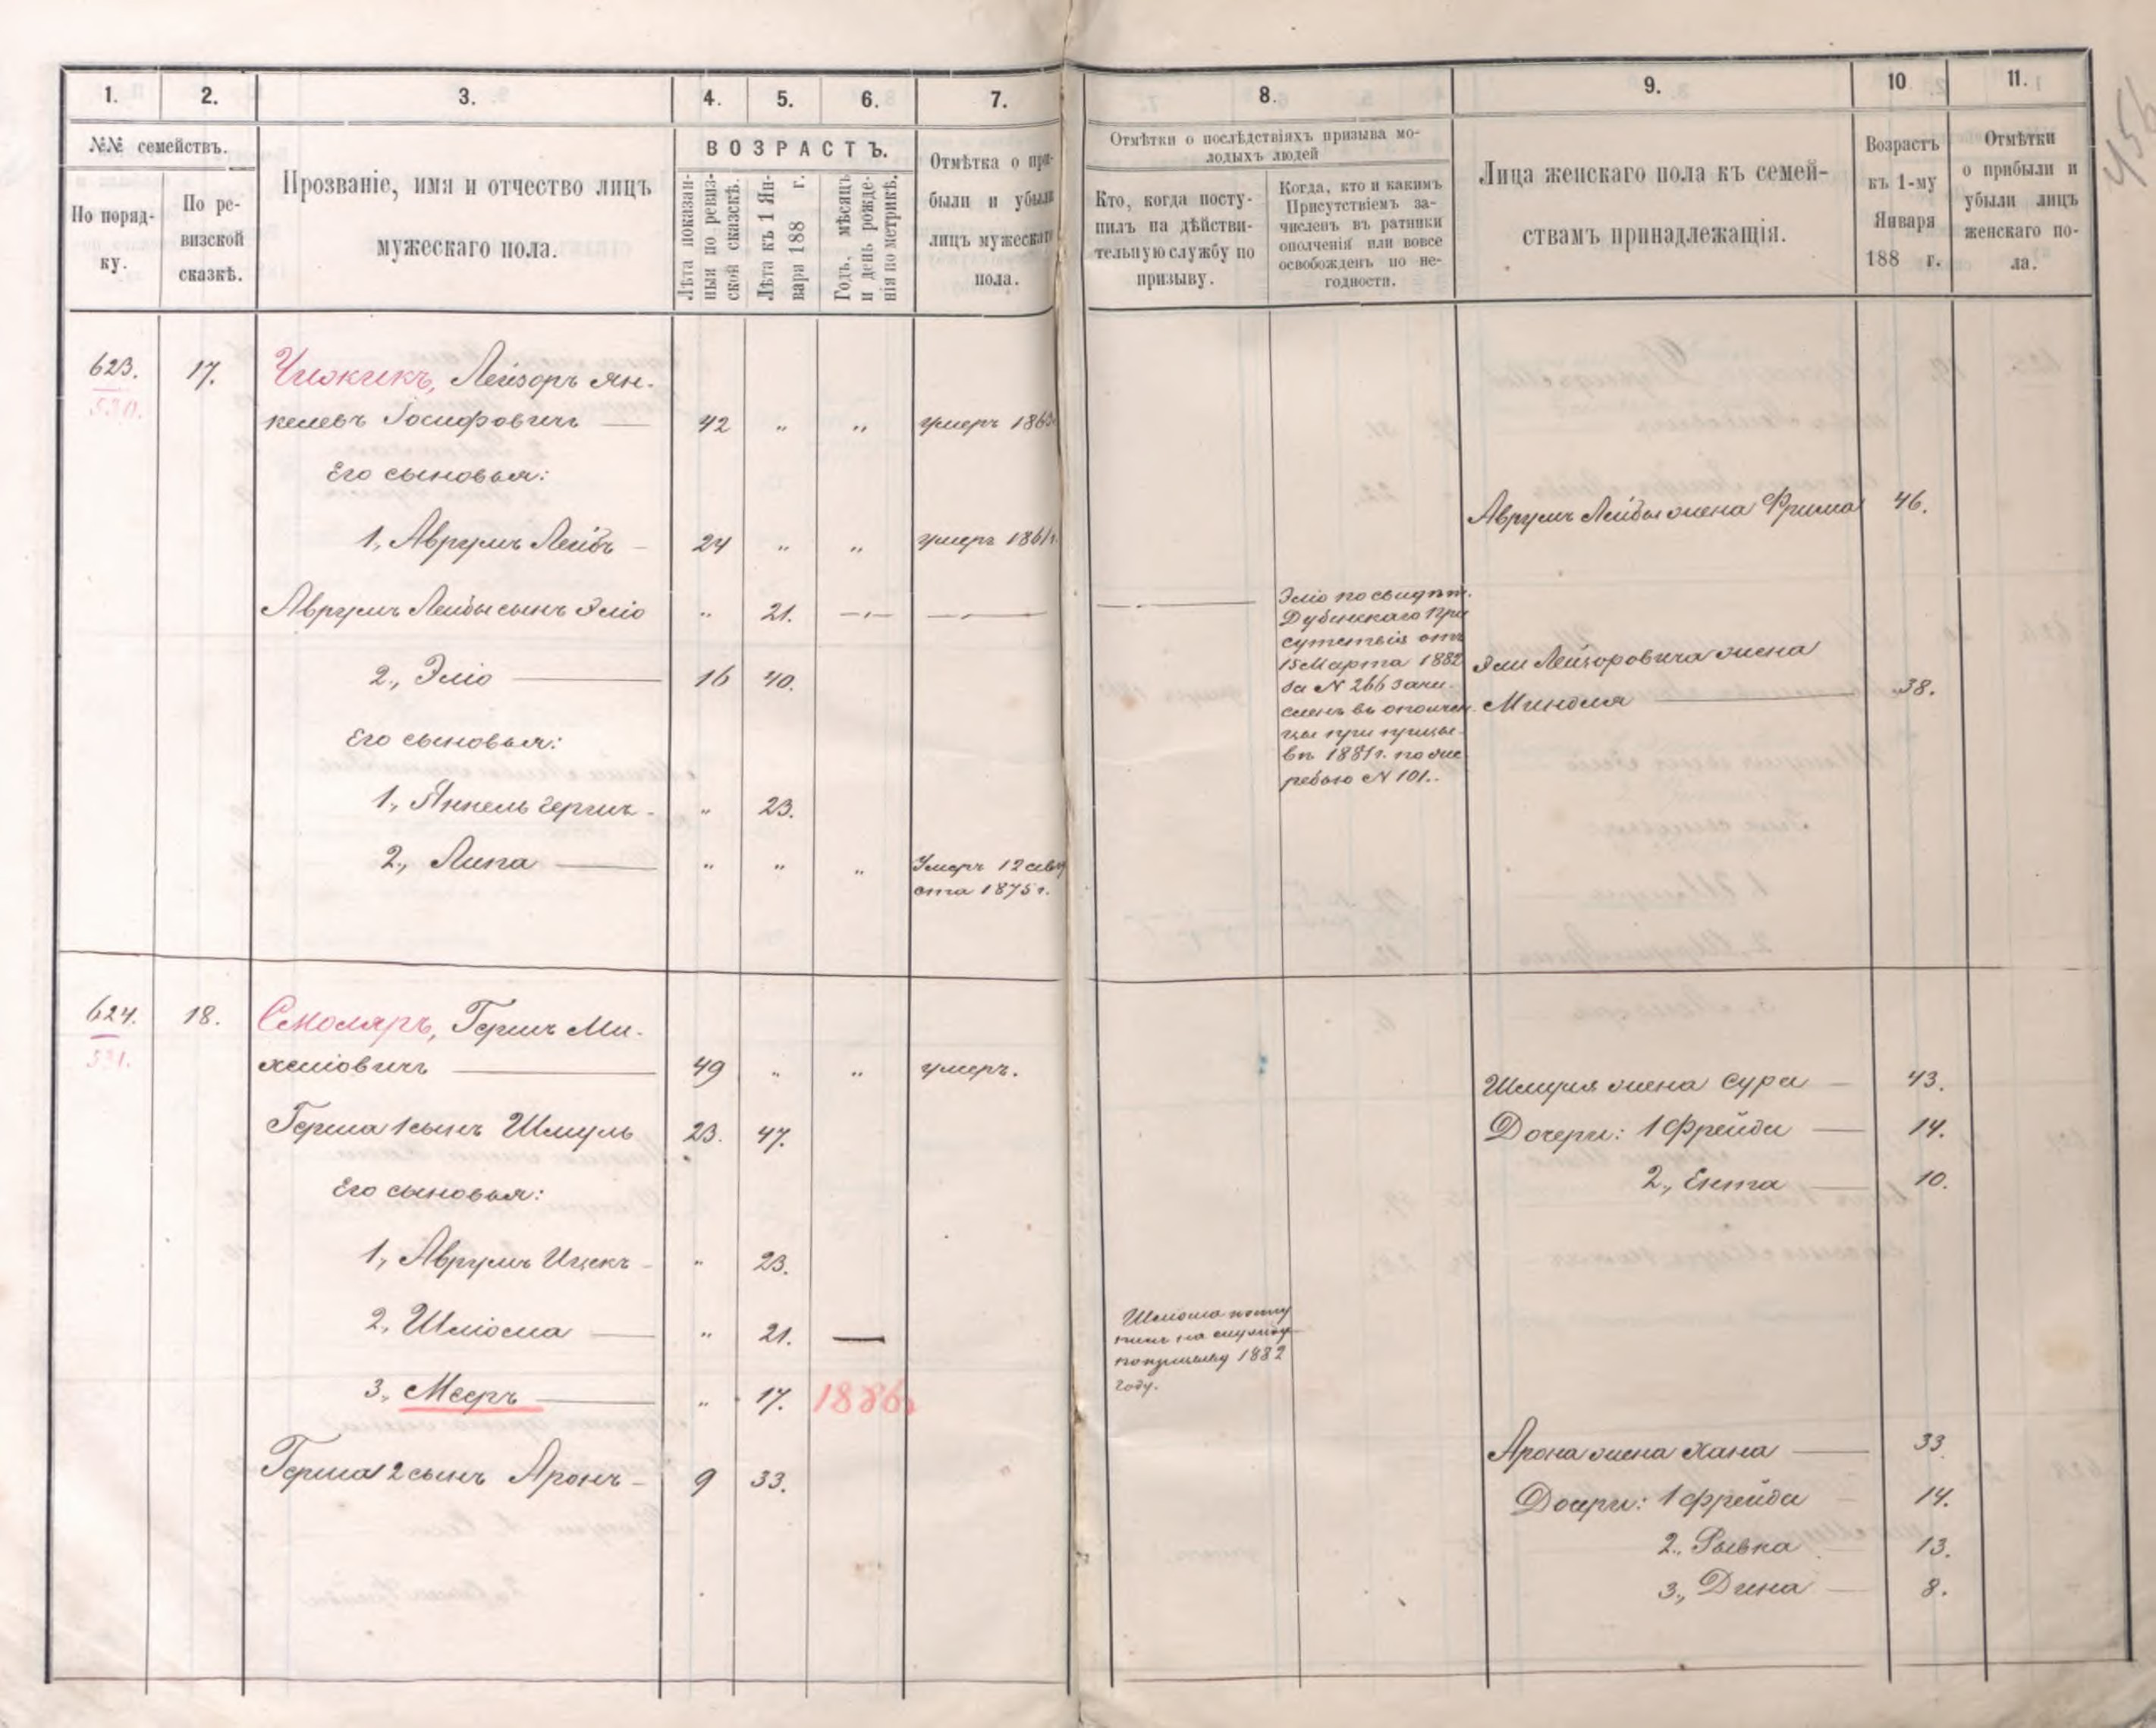 456
1.
2.
3.
4.
5.
6.
7.
8.
9.
10
11.
№№ семействъ.
По поряд-
ку.
По ре-
визской
сказкѣ.
Прозваніе, имя и отчество лицъ
мужескаго пола.
ВОЗРАСТЪ.
Лѣта показан-
ныя по ревиз-
ской сказкѣ.
Лѣта къ 1 Ян-
варя 188 г.
Годъ, мѣсяцъ
и день рожде-
нія по метрикѣ.
Отмѣтка о при-
были и убыли
лицъ мужескаго
пола.
Отмѣтки о послѣдствіяхъ призыва мо-
лодыхъ людей
Кто, когда посту-
пилъ на дѣйстви-
тельную службу по
призыву.
Когда, кто и какимъ
Присутствіемъ за-
численъ въ ратники
ополченія или вовсе
освобожденъ по не-
годности.
Лица женскаго пола къ семей-
ствамъ принадлежащія.
Возрастъ
къ 1-му
Января
188 г.
Отмѣтки
о прибыли и
убыли лицъ
женскаго по-
ла.
623. 17. Чижикъ, Лейзоръ Ян-
530.
келевъ Іосифовичъ — 42 " " умеръ 186
Его сыновья:
1, Аврумъ Лейбъ — 24 " " умеръ 1861г.
Аврумъ Лейбы жена Фрима 46.
Аврумъ Лейбы сынъ Эліо " 21. — —
Эліо по свидѣт.
Дубенскаго При
сутствія отъ
15 Марта 1882
за N 266 зачи.
сленъ въ ополчен.
цы при призы-
вѣ 1881г. по же
ребью N 101.
2, Эліо — 16 40.
Эли Лейзоровича жена
Миндля — 38.
Его сыновья:
1, Янкель Гершъ - " 23.
2, Липа — " " " Умеръ 12 авгу
ста 1875г.
624. 18. Смоляръ, Гершъ Ми-
531.
хеліовичъ — 49 " " умеръ.
Шмуля жена Сура — 43.
Герша 1 сынъ Шмуль 23. 47.
Дочери: 1 Фрейда — 14.
Его сыновья:
2, Ента — 10.
1, Аврумъ Ицекъ - " 23.
2, Шліома — " 21. —
Шліома посту
пилъ на службу
по призыву 1882
году.
3, Мееръ — " 17. 1886.
Герша 2 сынъ Аронъ - 9 33.
Арона жена Хана — 33
Дочери: 1 Фрейда — 14.
2, Рывка — 13.
3, Дина — 8.